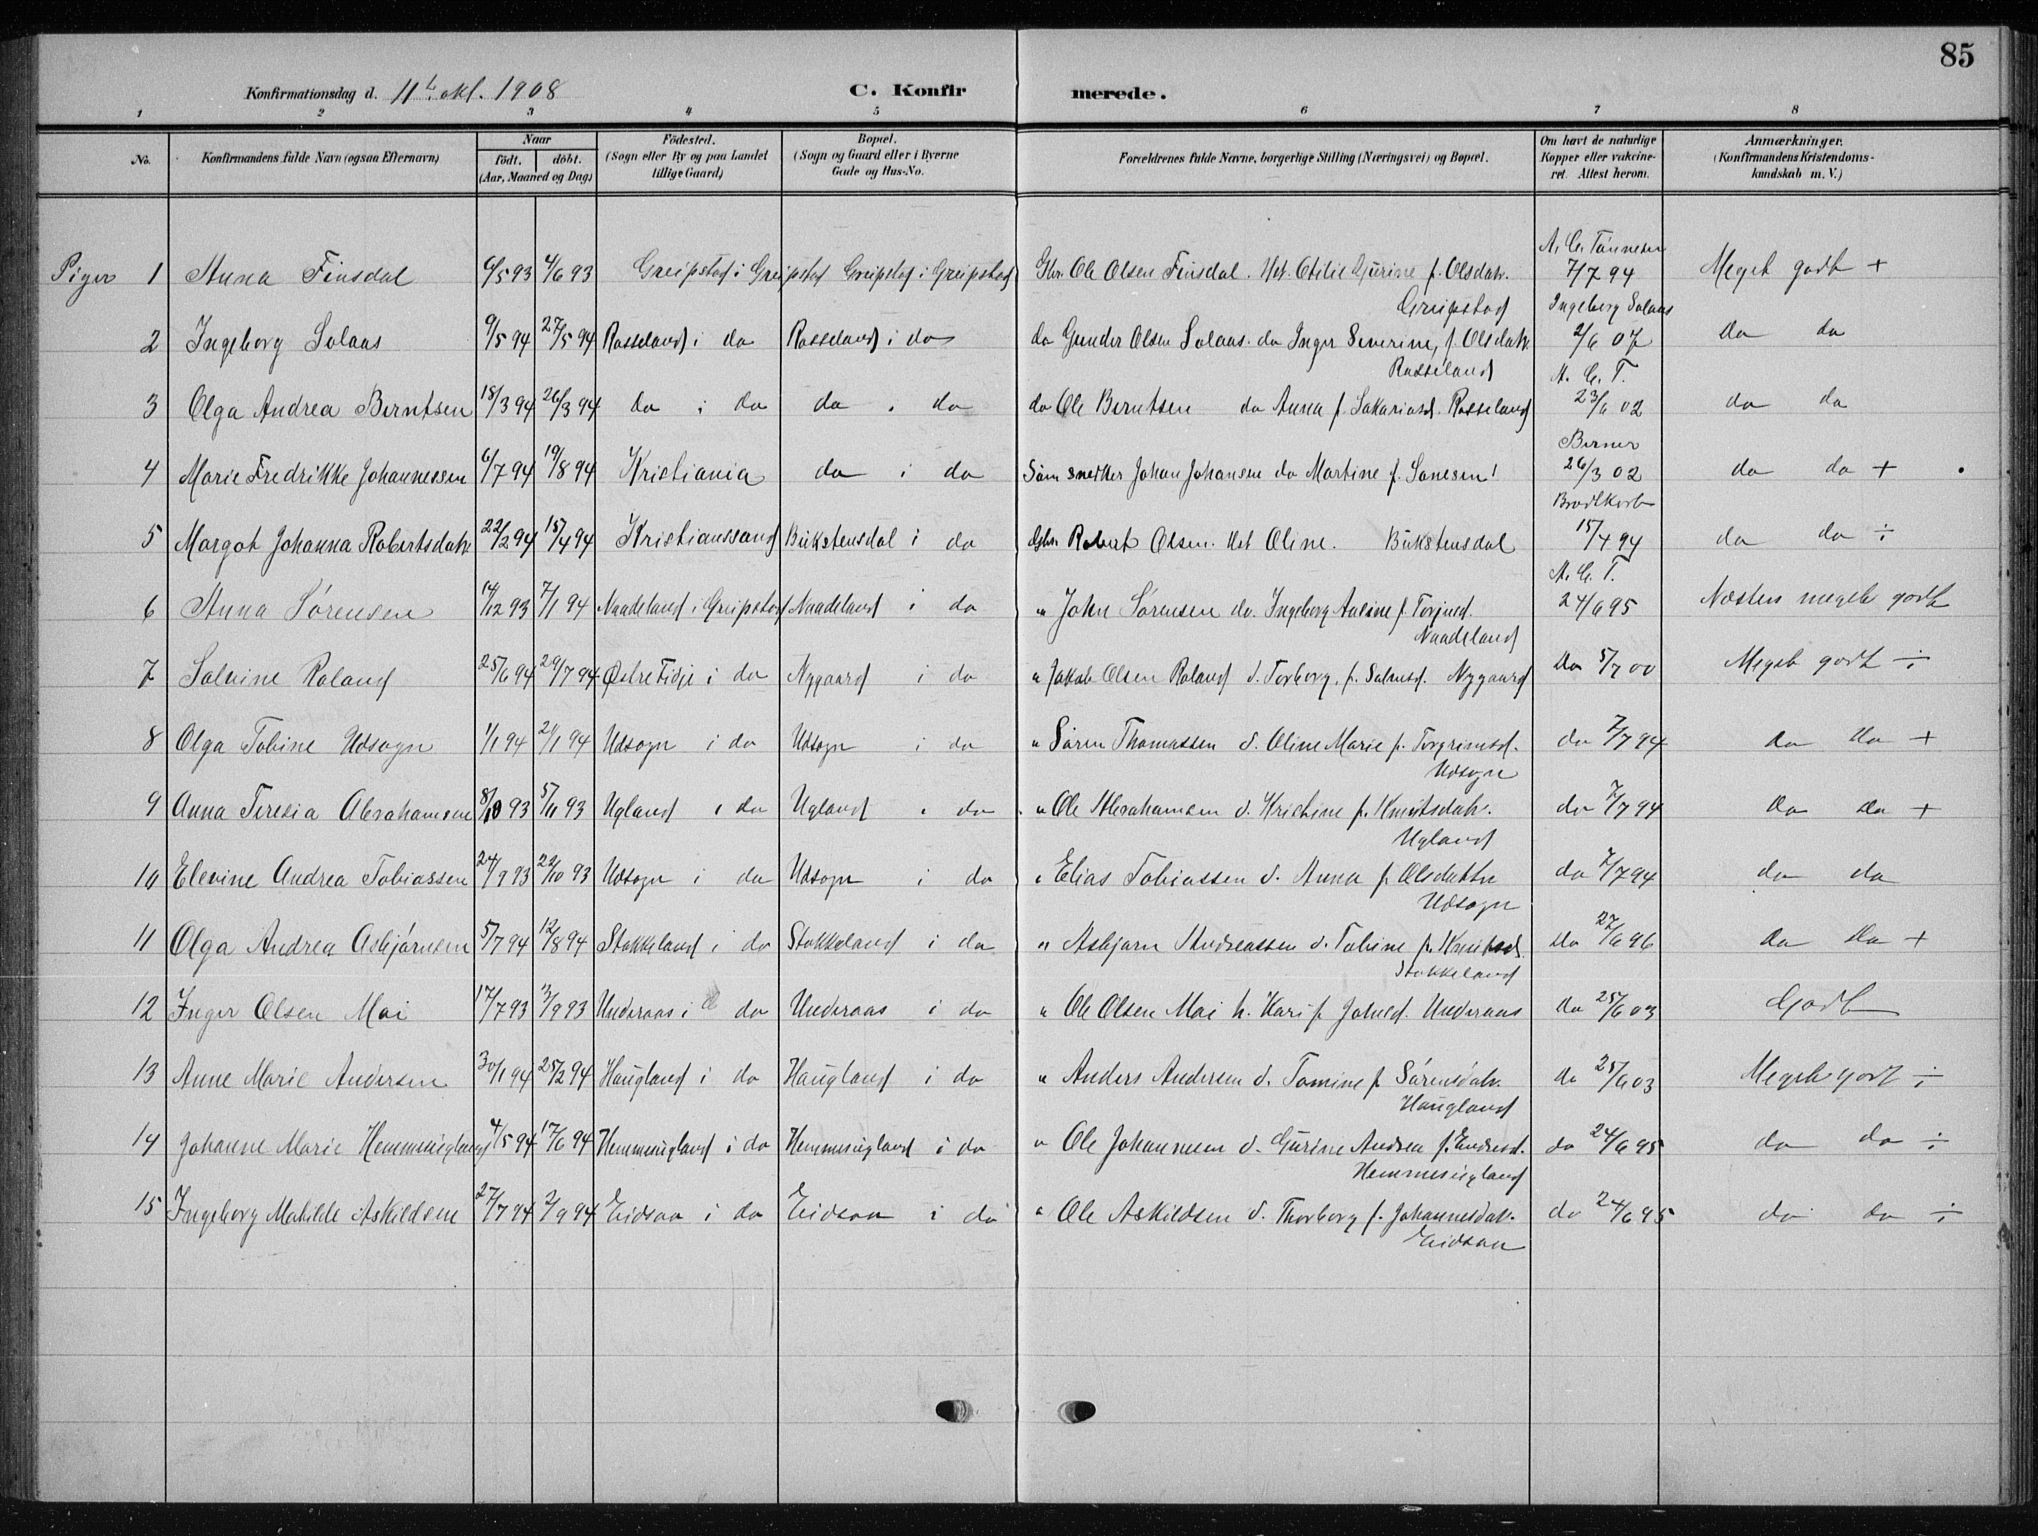 85
Konfirmationsdag d. 11te okt. 1908 C. Konfirmerede.
1 2 3 4 5 6 7 8
No. Konfirmandens fulde Navn (ogsaa Efternavn) Naar født. døbt. (Aar, Maaned og Dag) Fødested. (Sogn eller By og paa Landet tillige Gaard) Bopæl. (Sogn og Gaard eller i Byerne Gade og Hus-No. Forældrenes fulde Navne, borgerlige Stilling (Næringsvei) og Bopæl. Om havt de naturlige Kopper eller vakcineret. Attest herom. Anmærkninger. (Konfirmandens Kristendomskundskab m. V.)
A. G. Tønnesen
Piger 1 Anna Finsdal 6/5 93 4/6 93 Greipstad i Greipstad Greipstad i Greipstad Gbr. Ole Olsen Finsdal. Hst. Otilie Gurine f. Olsdatr. 7/7 94 Meget godt +
Greipstad Ingeborg Solaas
2 Ingeborg Solaas 9/5 94 27/5 94 Rosseland i do Rosseland i do do Gunder Olsen Solaas. do Inger Severine, f. Olsdatr. 2/6 07 do do
Rosseland A. G. T.
3 Olga Andrea Berntsen 18/3 94 26/3 94 do i do do i do do Ole Berntsen do Anna f. Sakariasd. Rosseland 23/6 02 do do
Berner
4 Marie Fredrikke Johannessen 6/7 94 19/8 94 Kristiania do i do snedker Johan Johansen do Martine f. 26/3 02 do do +
Brodtkorb
5 Margot Johanna Robertsdatr. 22/2 94 15/4 94 Kristianssand Bukstensdal i do Gbr. Robert Olsen. Hst Oline. Bukstensdal 15/4 94 do do ÷
A. G. T.
6 Anna Sørensen 14/12 93 7/1 94 Naadeland i Greipstad Naadeland i do " John Sørensen do. Ingeborg f. 24/6 95 Næsten meget godt
Naadeland
7 Salvine Roland 25/6 94 29/7 94 Øvlre Tidje i do Nygaard i do " Jakob Olsen Roland d. Torborg, f. Salvesd. Nygaard do 5/7 00 Meget godt ÷
8 Olga Tobine Udsogn 1/1 94 21/1 94 Udsogn i do Udsogn i do " Søren Thomassen d. Oline Marie f. Torgrimsd. do 7/7 94 do do +
Udsogn
9 Anna Teresia Abrahamsen 8/10 93 5/11 93 Ugland i do Ugland i do " Ole Abrahamsen d. Kristine f. Knutsdatr. do 7/7 94 do do +
Ugland
10 Elevine Andrea Tobiassen 24/9 93 22/10 93 Udsogn i do Udsogn i do " Elias Tobiassen d. Anna f. Olsdatter do 7/7 94 do do
Udsogn
11 Olga Andrea Asbjørnsen 5/7 94 12/8 94 Stokkeland i do Stokkeland i do " Asbjørn Andreassen d. Tobine f. Knutsd. do 27/6 96 do do +
Stokkeland
12 Inger Olsen Moi 17/7 93 3/9 93 Underaas i do Underaas i do " Ole Olsen Moi h. Kari f. Johnsd. Underaas do 25/6 03 Godt
13 Anne Marie Andersen 30/1 94 25/2 94 Haugland i do Haugland i do " Anders Andersen d. Tomine f Sørensdatr. do 25/6 03 Meget godt ÷
Haugland
14 Johanne Marie Hemmingland 4/5 94 17/6 94 Hemmingland i do Hemmingland i do " Ole Johannesen d. Gurine Andrea f. Endresd. do 24/6 95 do do ÷
Hemmingland
15 Ingeborg Mathilde Askildsen 27/7 94 2/9 94 Eidsaa i do Eidsaa i do " Ole Askildsen d. Thorborg f. Johannesdatr. do 24/6 95 do do ÷
Eidsaa